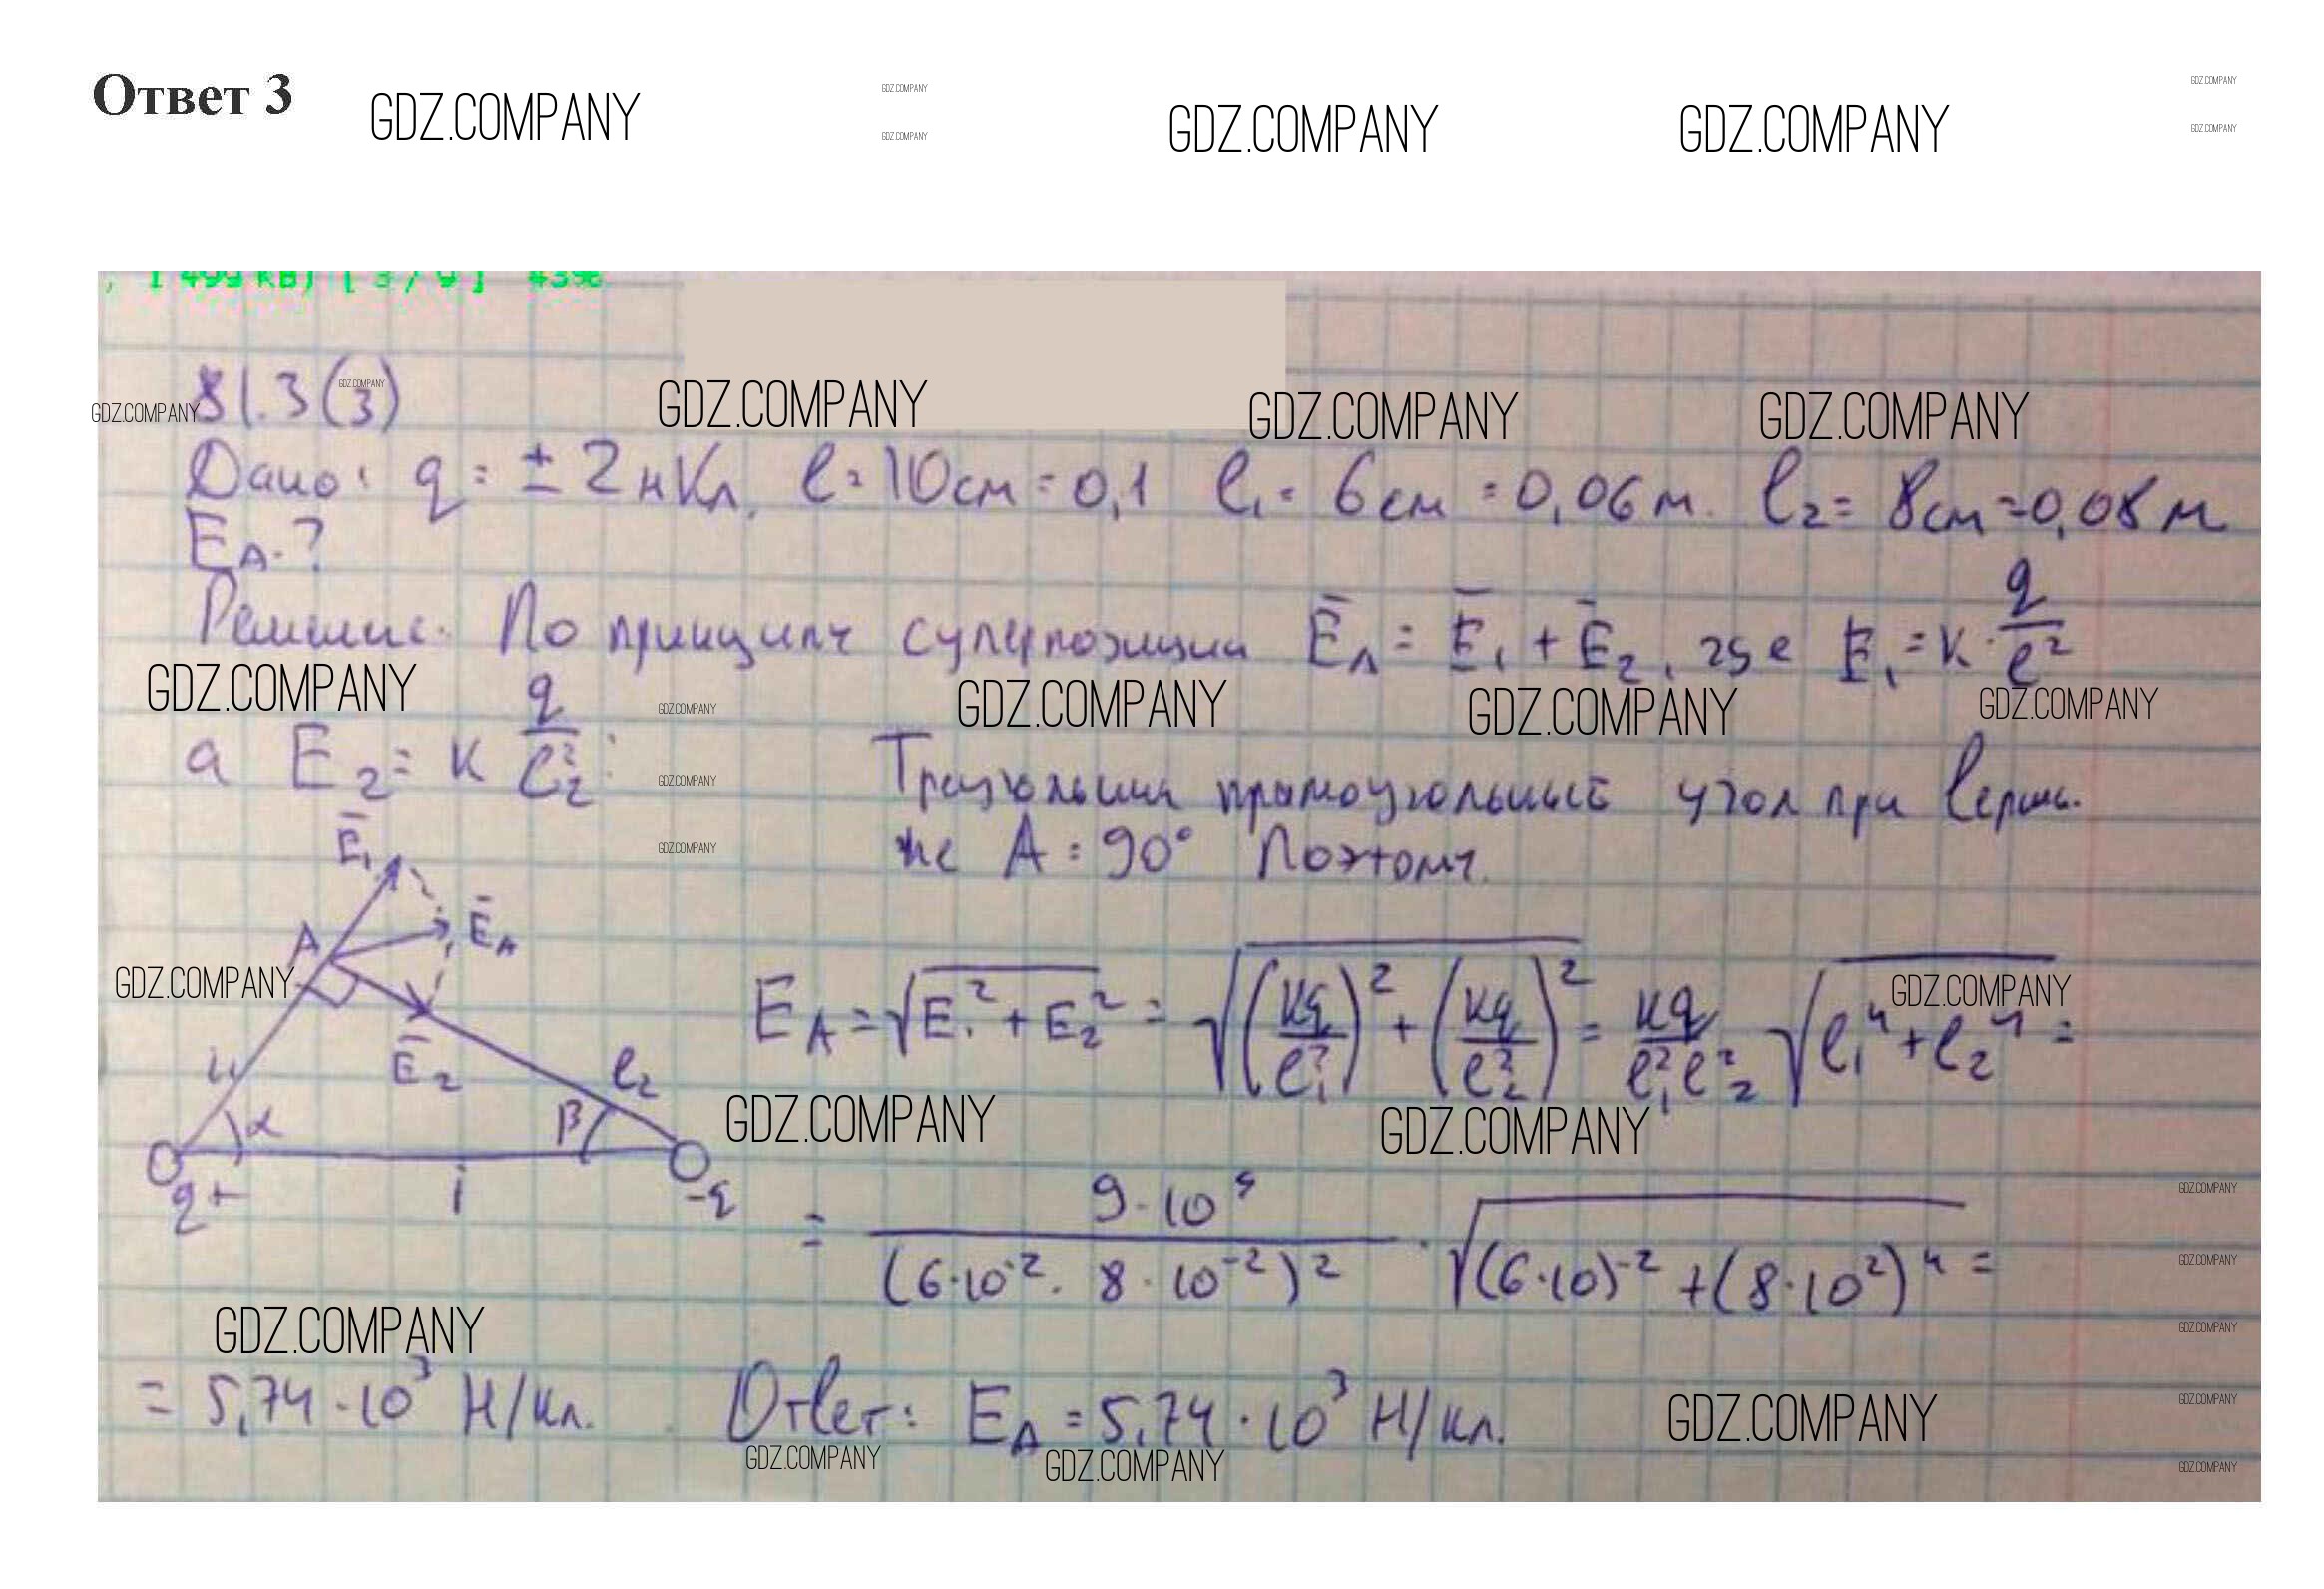 Ответ 3
GDZ.COMPANY GDZ.COMPANY GDZ.COMPANY GDZ.COMPANY
GDZ.COMPANY GDZ.COMPANY
GDZ.COMPANY GDZ.COMPANY
, 1 499 KB) [ 3 / 9 ] 43%
81.3(3)
GDZ.COMPANY GDZ.COMPANY GDZ.COMPANY GDZ.COMPANY GDZ.COMPANY
Дано: q = ± 2 нКл. l = 10см = 0,1 l₁ = 6см = 0,06м. l₂ = 8см = 0,08м
E_A - ?
Решение. По принципу суперпозиции Ē_A = Ē₁ + Ē₂, где E₁ = к · q/l²
GDZ.COMPANY GDZ.COMPANY GDZ.COMPANY GDZ.COMPANY GDZ.COMPANY
а E₂ = к q/l₂² :
GDZ.COMPANY
GDZ.COMPANY
Треугольник прямоугольный угол при верши-
не A = 90° Поэтому.
Ē₁
A
Ē_A
Ē₂
l₂
α
β
q+
-q
GDZ.COMPANY GDZ.COMPANY
E_A = √(E₁² + E₂²) = √((кq/l₁²)² + (кq/l₂²)²) = кq/(l₁²l₂²) √(l₁⁴ + l₂⁴) =
GDZ.COMPANY GDZ.COMPANY
= 9·10⁹/(6·10⁻² · 8·10⁻²)² · √((6·10)⁻² + (8·10²)⁴) =
GDZ.COMPANY
GDZ.COMPANY
GDZ.COMPANY
GDZ.COMPANY
= 5,74 · 10³ Н/кл. Ответ: E_A = 5,74 · 10³ Н/кл.
GDZ.COMPANY GDZ.COMPANY
GDZ.COMPANY GDZ.COMPANY
GDZ.COMPANY